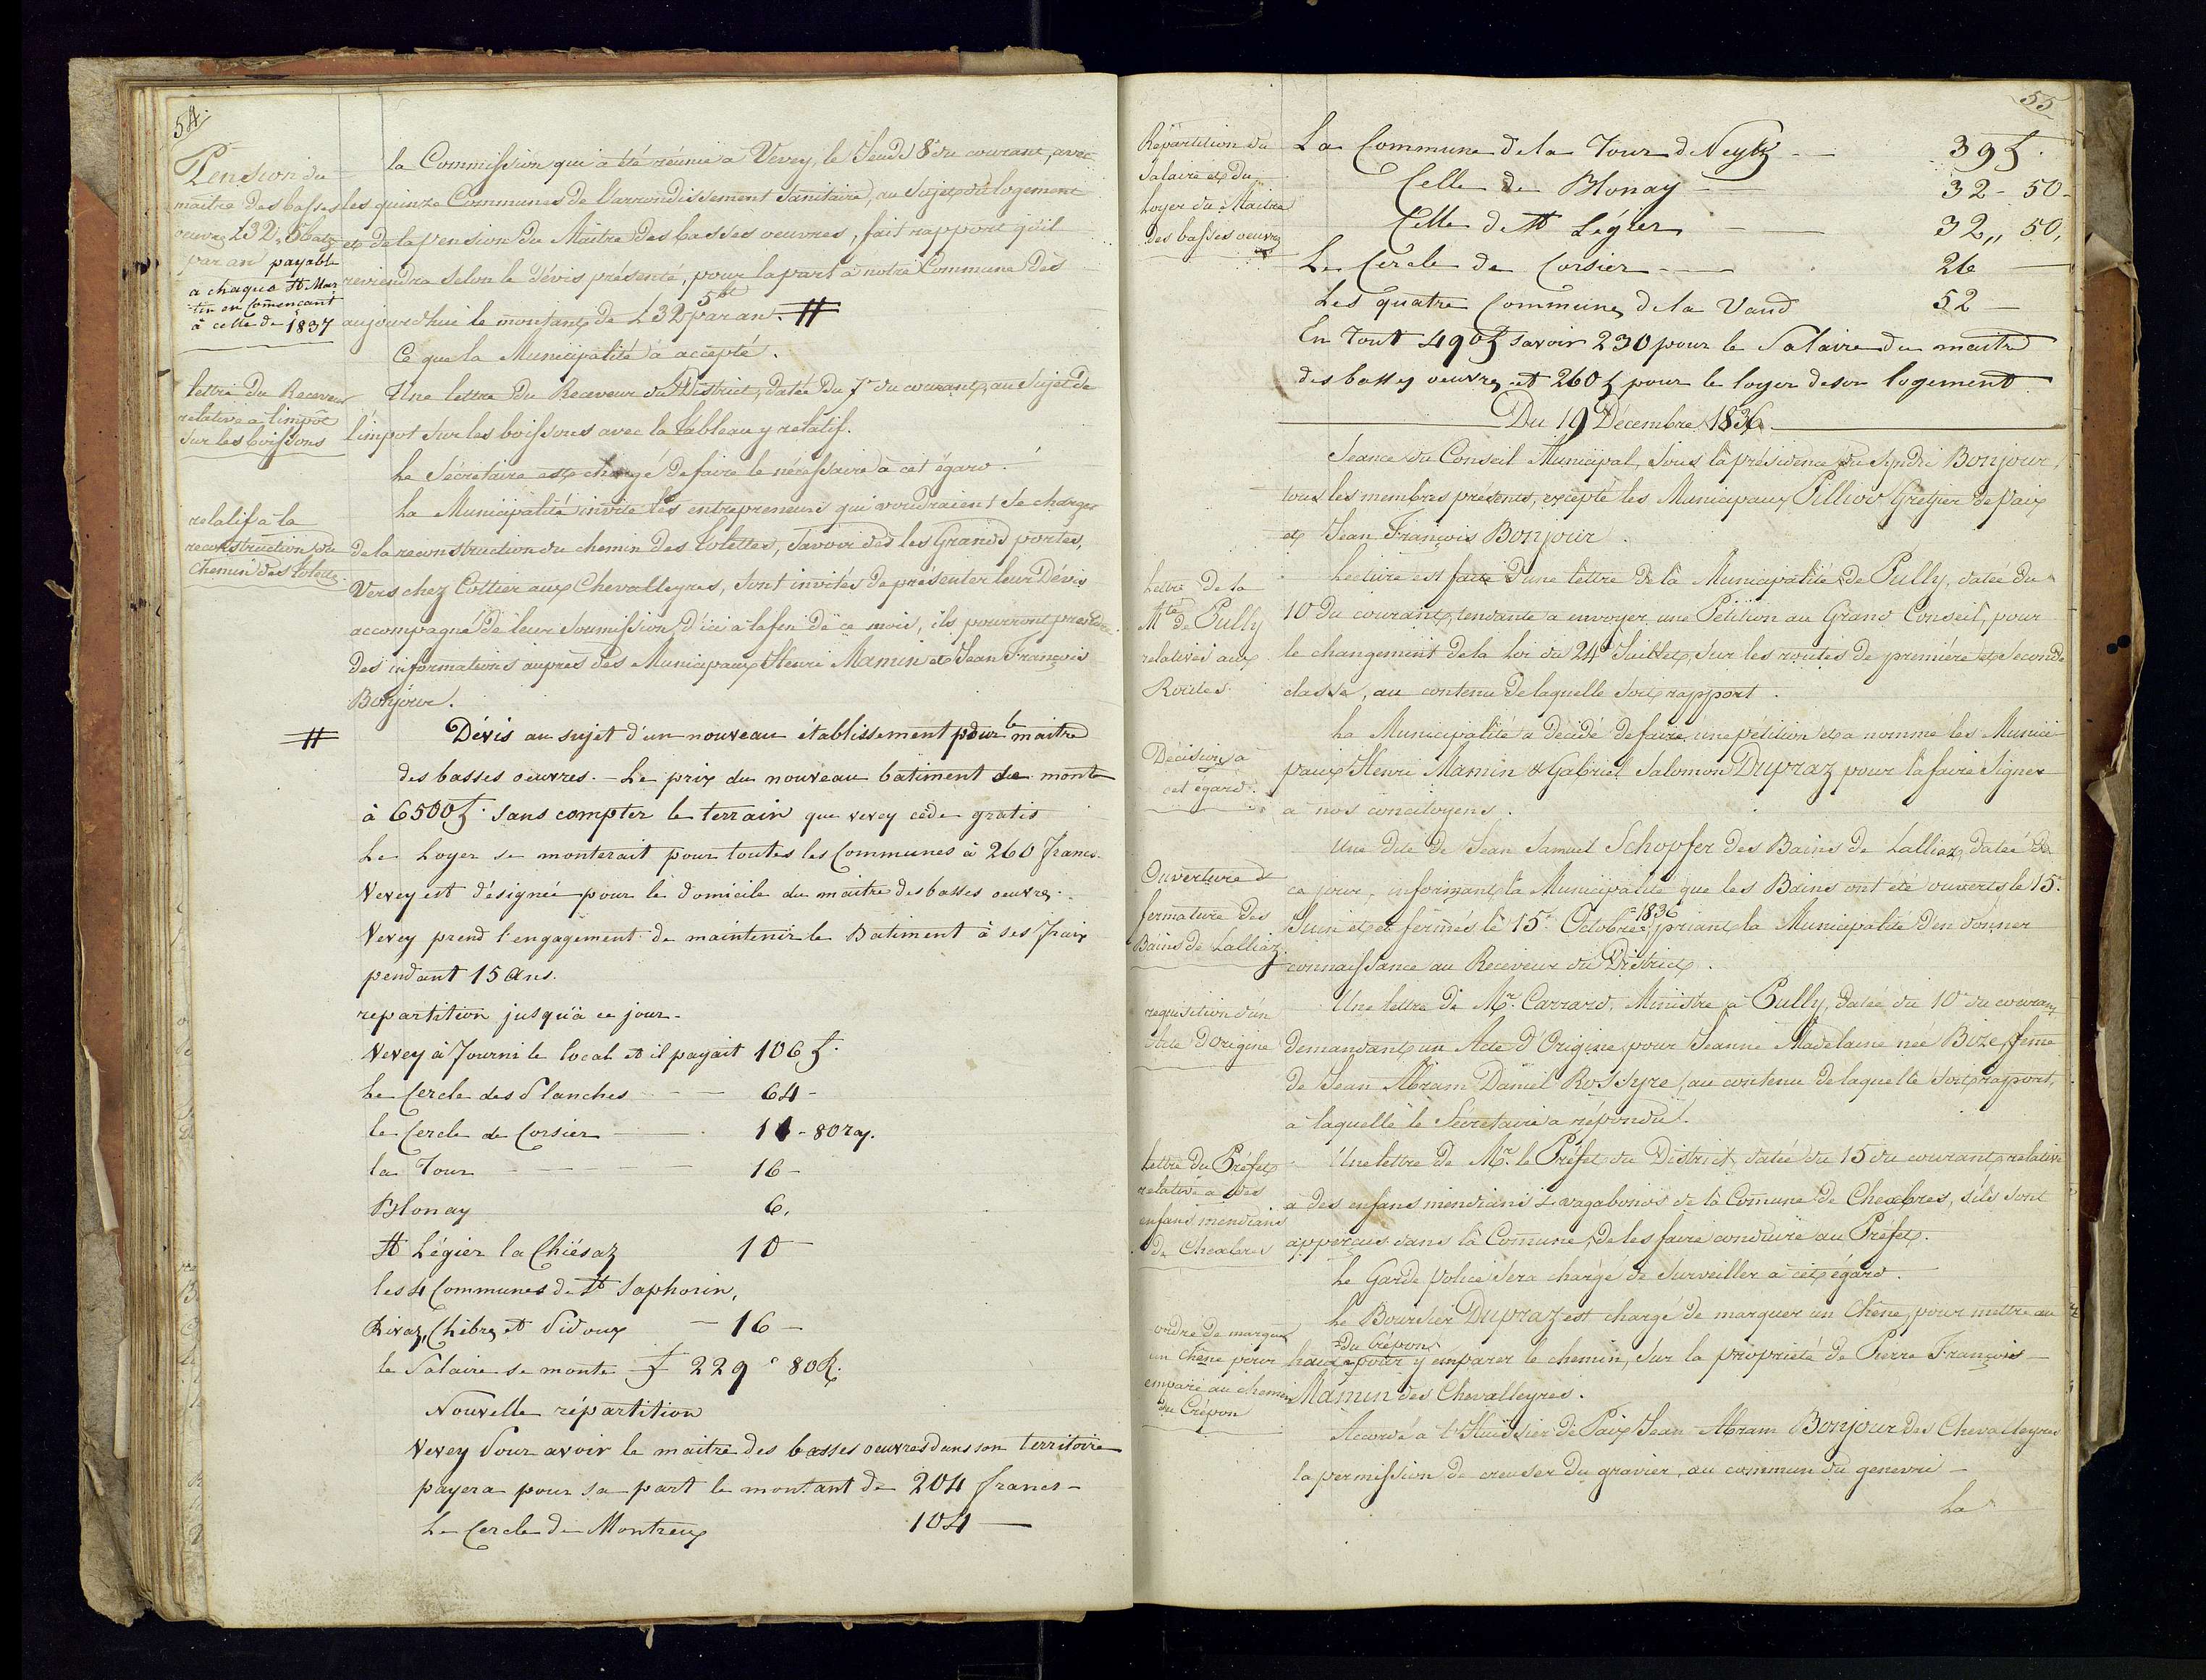 54.
Pension du
maître des basses
oeuvres L 32, 5 batz
par an payable
a chaque St Mar
tin en Comencant
à celle de 1837
la Commission qui a été réunie à Vevey, le Jeudi 8 du courant, avec
les quinze Communes de l'arrondissement Sanitaire, au Sujet du logement
et de la pension du Maitre des basses oeuvres, fait rapport qu'il
reviendra selon le dévis présenté, pour la part à notre Commune dès
aujourd'hui le montant de L 32 5 bz par an. #
Ce que la Municipalité à accepté.
lettre du Receveur
relative a l'impôt
Sur les boissons
Une lettre du Receveur du District, datée du 7e du courant, au Sujet de
l'impot Sur les boissons avec le tableau y relatif.
Le Sécretaire est chargé de faire le nécessaire à cet égard.
relatif à la
reconstruction du
chemin des tolettes.
La Municipalité invite les entrepreneurs qui voudraient Se charger
de la reconstruction du chemin des tolettes, Savoir dès les Grands portes,
Vers chez Cottier aux Chevalleyres, Sont invités de présenter leur Dévis
accompagné de leur Soumission, d'ici à la fin de ce mois, ils pourront prendre
des informations auprès des Municipaux Henri Mamin et Jean François
Bonjour.
# Dévis au sujet d'un nouveau établissement pour le maitre
des basses oeuvres. - Le prix du nouveau batiment se monte
à 6500 f. sans compter le terrain que vevey cède gratis
Le Loyer se monterait pour toutes les Communes à 260 francs.
Vevey est désignée pour le domicile du maitre des basses oeuvres.
Vevey prend l'engagement de maintenir le Batiment à ses frais
pendant 15 ans.
repartition jusqu'à ce jour.
Vevey à fourni le local et il payait 106 f.
Le Cercle des Planches - - 64 -
le Cercle de Corsier - 11 - 80 ra.
la Tour - - - 16 -
Blonay 6.
St Légier la Chiésaz 10 -
les 4 Communes de St Saphorin,
Rivaz, Chèbres et Pidoux - 16 -
le Salaire se monte f 229 " 80 R.
Nouvelle répartition
Vevey Pour avoir le maitre des basses oeuvres dans son territoire
payera pour sa part le montant de 204 francs -
Le Cercle de Montreux 104 -
55
Répartition du
Salaire et du
Loyer du Maitre
des basses oeuvres
La Commune de la Tour de Peylz - 39 f.
Celle de Blonay - 32 - 50 -
Celle de St Légier - 32 ,, 50,
Le Cercle de Corsier - - 26 -
Les quatre Communes de la Vaud 52 -
En Tout 490 f savoir 230 pour le Salaire du maitre
des basses oeuvres et 260 f pour le loyer de son logement.
Du 19 Décembre 1836.
Seance du Conseil Municipal, Sous la présidence du Syndic Bonjour,
tous les membres présents, excepté les Municipaux Pilliod Greffier de Paix
et Jean François Bonjour.
Lettre de la
Mté de Pully
relatives aux
Routes.
Lecture est faite d'une lettre de la Municipalité de Pully, datée du
10 du courant, tendante a envoyer une Pétition au Grand Conseil, pour
le changement de la Loi du 24e Juillet, Sur les routes de première et Seconde
classe, au contenu de laquelle Soit rapport.
Décision à
cet égard.
La Municipalité a décidé de faire une pétition et a nommé les Munici
paux Henri Mamin & Gabriel Salomon Dupraz pour la faire Signer
a nos concitoyens.
Ouverture &
fermature des
Bains de Lalliaz
Une dite de Jean Samuel Schopfer des Bains de Lalliaz, datée de
ce jour, informant la Municipalité que les Bains ont été ouverts le 15e
Juin et et fermés le 15e Octobre 1836, priant la Municipalité d'en donner
connaissance au Receveur du District.
requisition d'un
Acte d'Origine
Une lettre de Mr. Carrard, Ministre à Pully, datée du 10e du courant
demandant un Acte d'Origine, pour Jeanne Madelaine née Bize, feme
de Jean Abram Daniel Rossyre, au contenu de laquelle Soit rapport,
a laquelle le Sécretaire a répondu.
lettre du Préfet
relative a des
enfans mendians
de Chexbres
Une lettre de Mr. le Préfet du District, datée du 15 du courant, relative
a des enfans mendians & vagabonds de la Comune de Chexbres, s'ils sont
apperçus dans la Comune, de les faire conduire au Préfet.
Le Garde police Sera chargé de Surveiller à cet égard.
ordre de marquer
un chêne pour
emparé au chemin
du Crépon
Le Boursier Dupraz est chargé de marquer un Chêne, pour mettre au
haut du Crépon pour y emparer le chemin, Sur la propriété de Pierre François
Mamin des Chevalleyres.
Accordé à l'Huissier de Paix Jean Abram Bonjour des Chevalleyres
la permission de creuser du gravier, au commun du genevri -
La